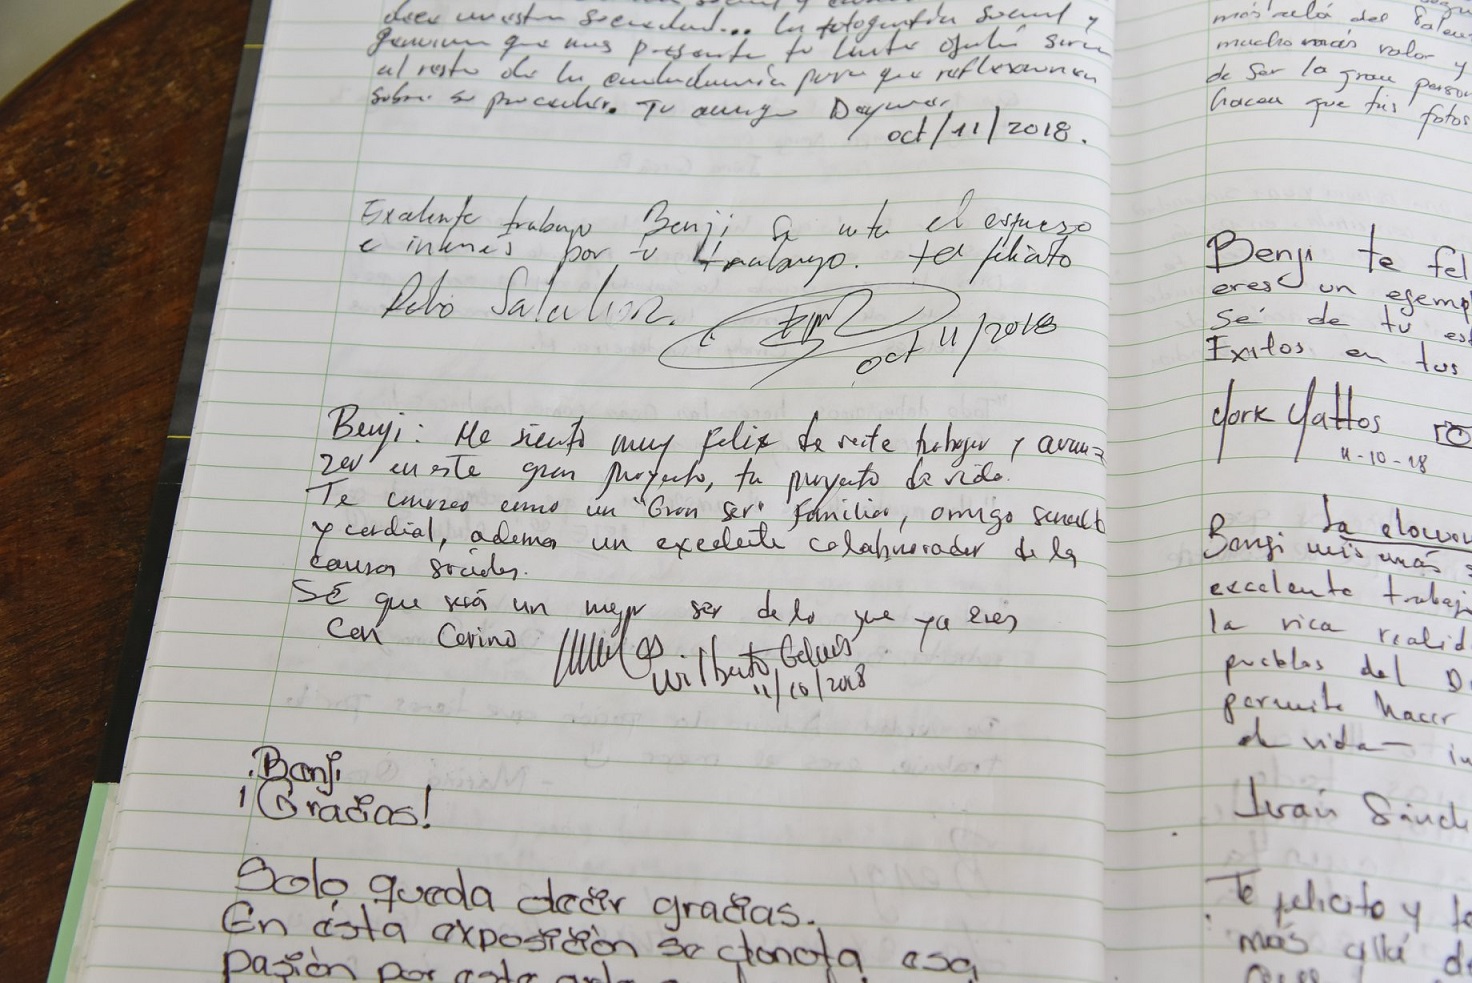 nuestra sociedad... la fotografía social y
genuina que nos presenta tu lente ojalá sirva
al resto de la ciudadanía para que reflexionen
sobre su proceder. Tu amigo
oct/11/2018.
Exelente trabajo Benji se nota el esfuerzo
e interes por tu trabajo. te felicito
oct 11/2018
Benji: Me siento muy feliz de verte trabajar y avan-
zar en este gran proyecto, tu proyecto de vida.
Te conozco como un "Gran ser" Familiar, amigo sensato
y cordial, ademas un excelente colaborador de la
causas sociales.
SÉ que será un mejor ser de lo que ya eres
Con Carino
Wilberto
11/10/2018
Benji
¡Gracias!
Solo queda decir gracias.
En ésta exposición se denota esa
pasión por este
más allá del
mucho más valor y
de ser la gran person
hacen que tus fotos
Benji te fel
eres un ejemp
sé de tu es
Exitos en tus
York Mattos
11-10-18
La elocuen
Benji mis más s
excelente trabaj
la rica realid
pueblos del D
permite hacer
de vida- in
Iván Sánch
Te felicito y
más allá d